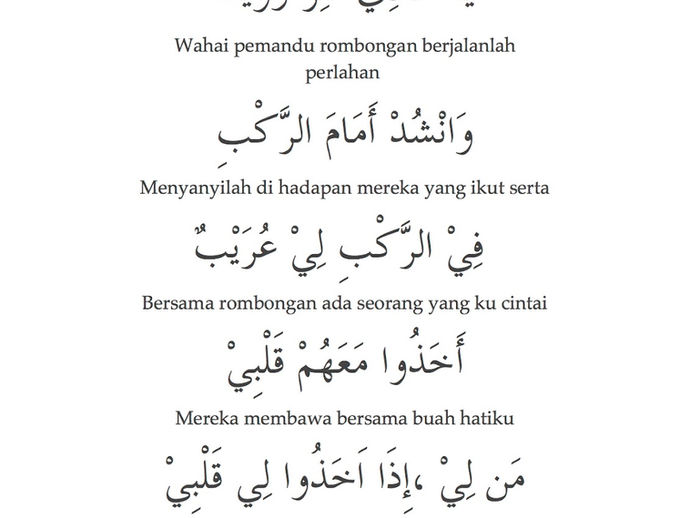 Wahai pemandu rombongan berjalanlah
perlahan
وَانْشُدْ أَمَامَ الرَّكْبِ
Menyanyilah di hadapan mereka yang ikut serta
فِيْ الرَّكْبِ لِيْ عُرَيْبٌ
Bersama rombongan ada seorang yang ku cintai
أَخَذُوا مَعَهُمْ قَلْبِيْ
Mereka membawa bersama buah hatiku
مَن لِيْ ،إِذَا اَخَذُوا لِي قَلْبِيْ